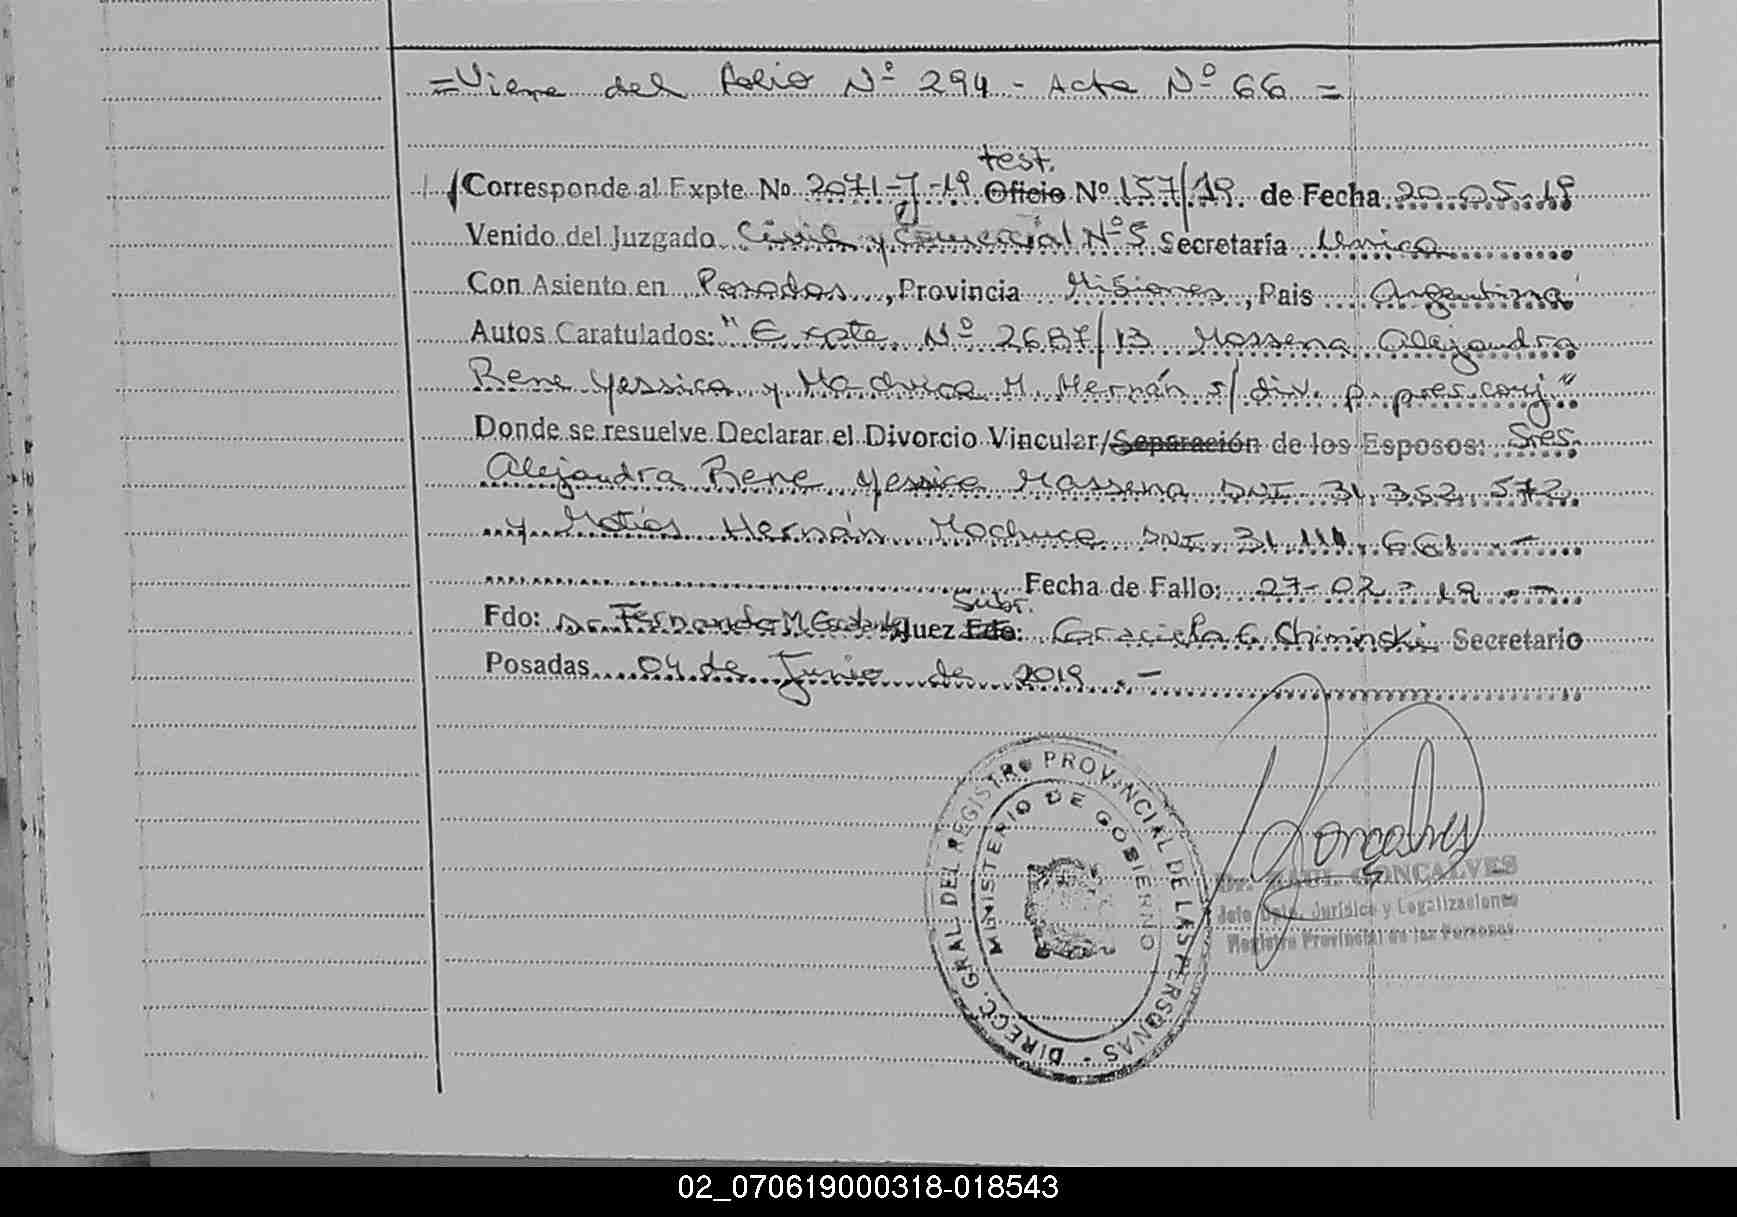 =Viene del folio Nº 294 - Acta Nº 66 =
test.
Corresponde al Expte. No. 2071-J-19 Oficio Nº 157/19 de Fecha 20-05-19
Venido del Juzgado Civil y Comercial Nº 5 Secretaría Unica
Con Asiento en Posadas, Provincia Misiones, Pais Argentina
Autos Caratulados: "Expte. Nº 2687/13 Massena Alejandra
Rene Yessica y Machuca M. Hernán s/ div. p. pres. conj"
Donde se resuelve Declarar el Divorcio Vincular/Separación de los Esposos: Sres.
Alejandra Rene Yessica Massena DNI 31.352.572.
y Matías Hernán Machuca DNI. 31.111.661.-
Fecha de Fallo: 27-02-19.-
Subr.
Fdo: Dr. Fernando M. Juez Fdo: Graciela C. Chiminski Secretario
Posadas 04 de Junio de 2019.-
DIRECC. GRAL DEL REGISTRO PROVINCIAL DE LAS PERSONAS -
MINISTERIO DE GOBIERNO
Goncalves
Dr. RAUL GONCALVES
Jefe Dpto. Jurídico y Legalizaciones
Registro Provincial de las Personas
02_070619000318-018543